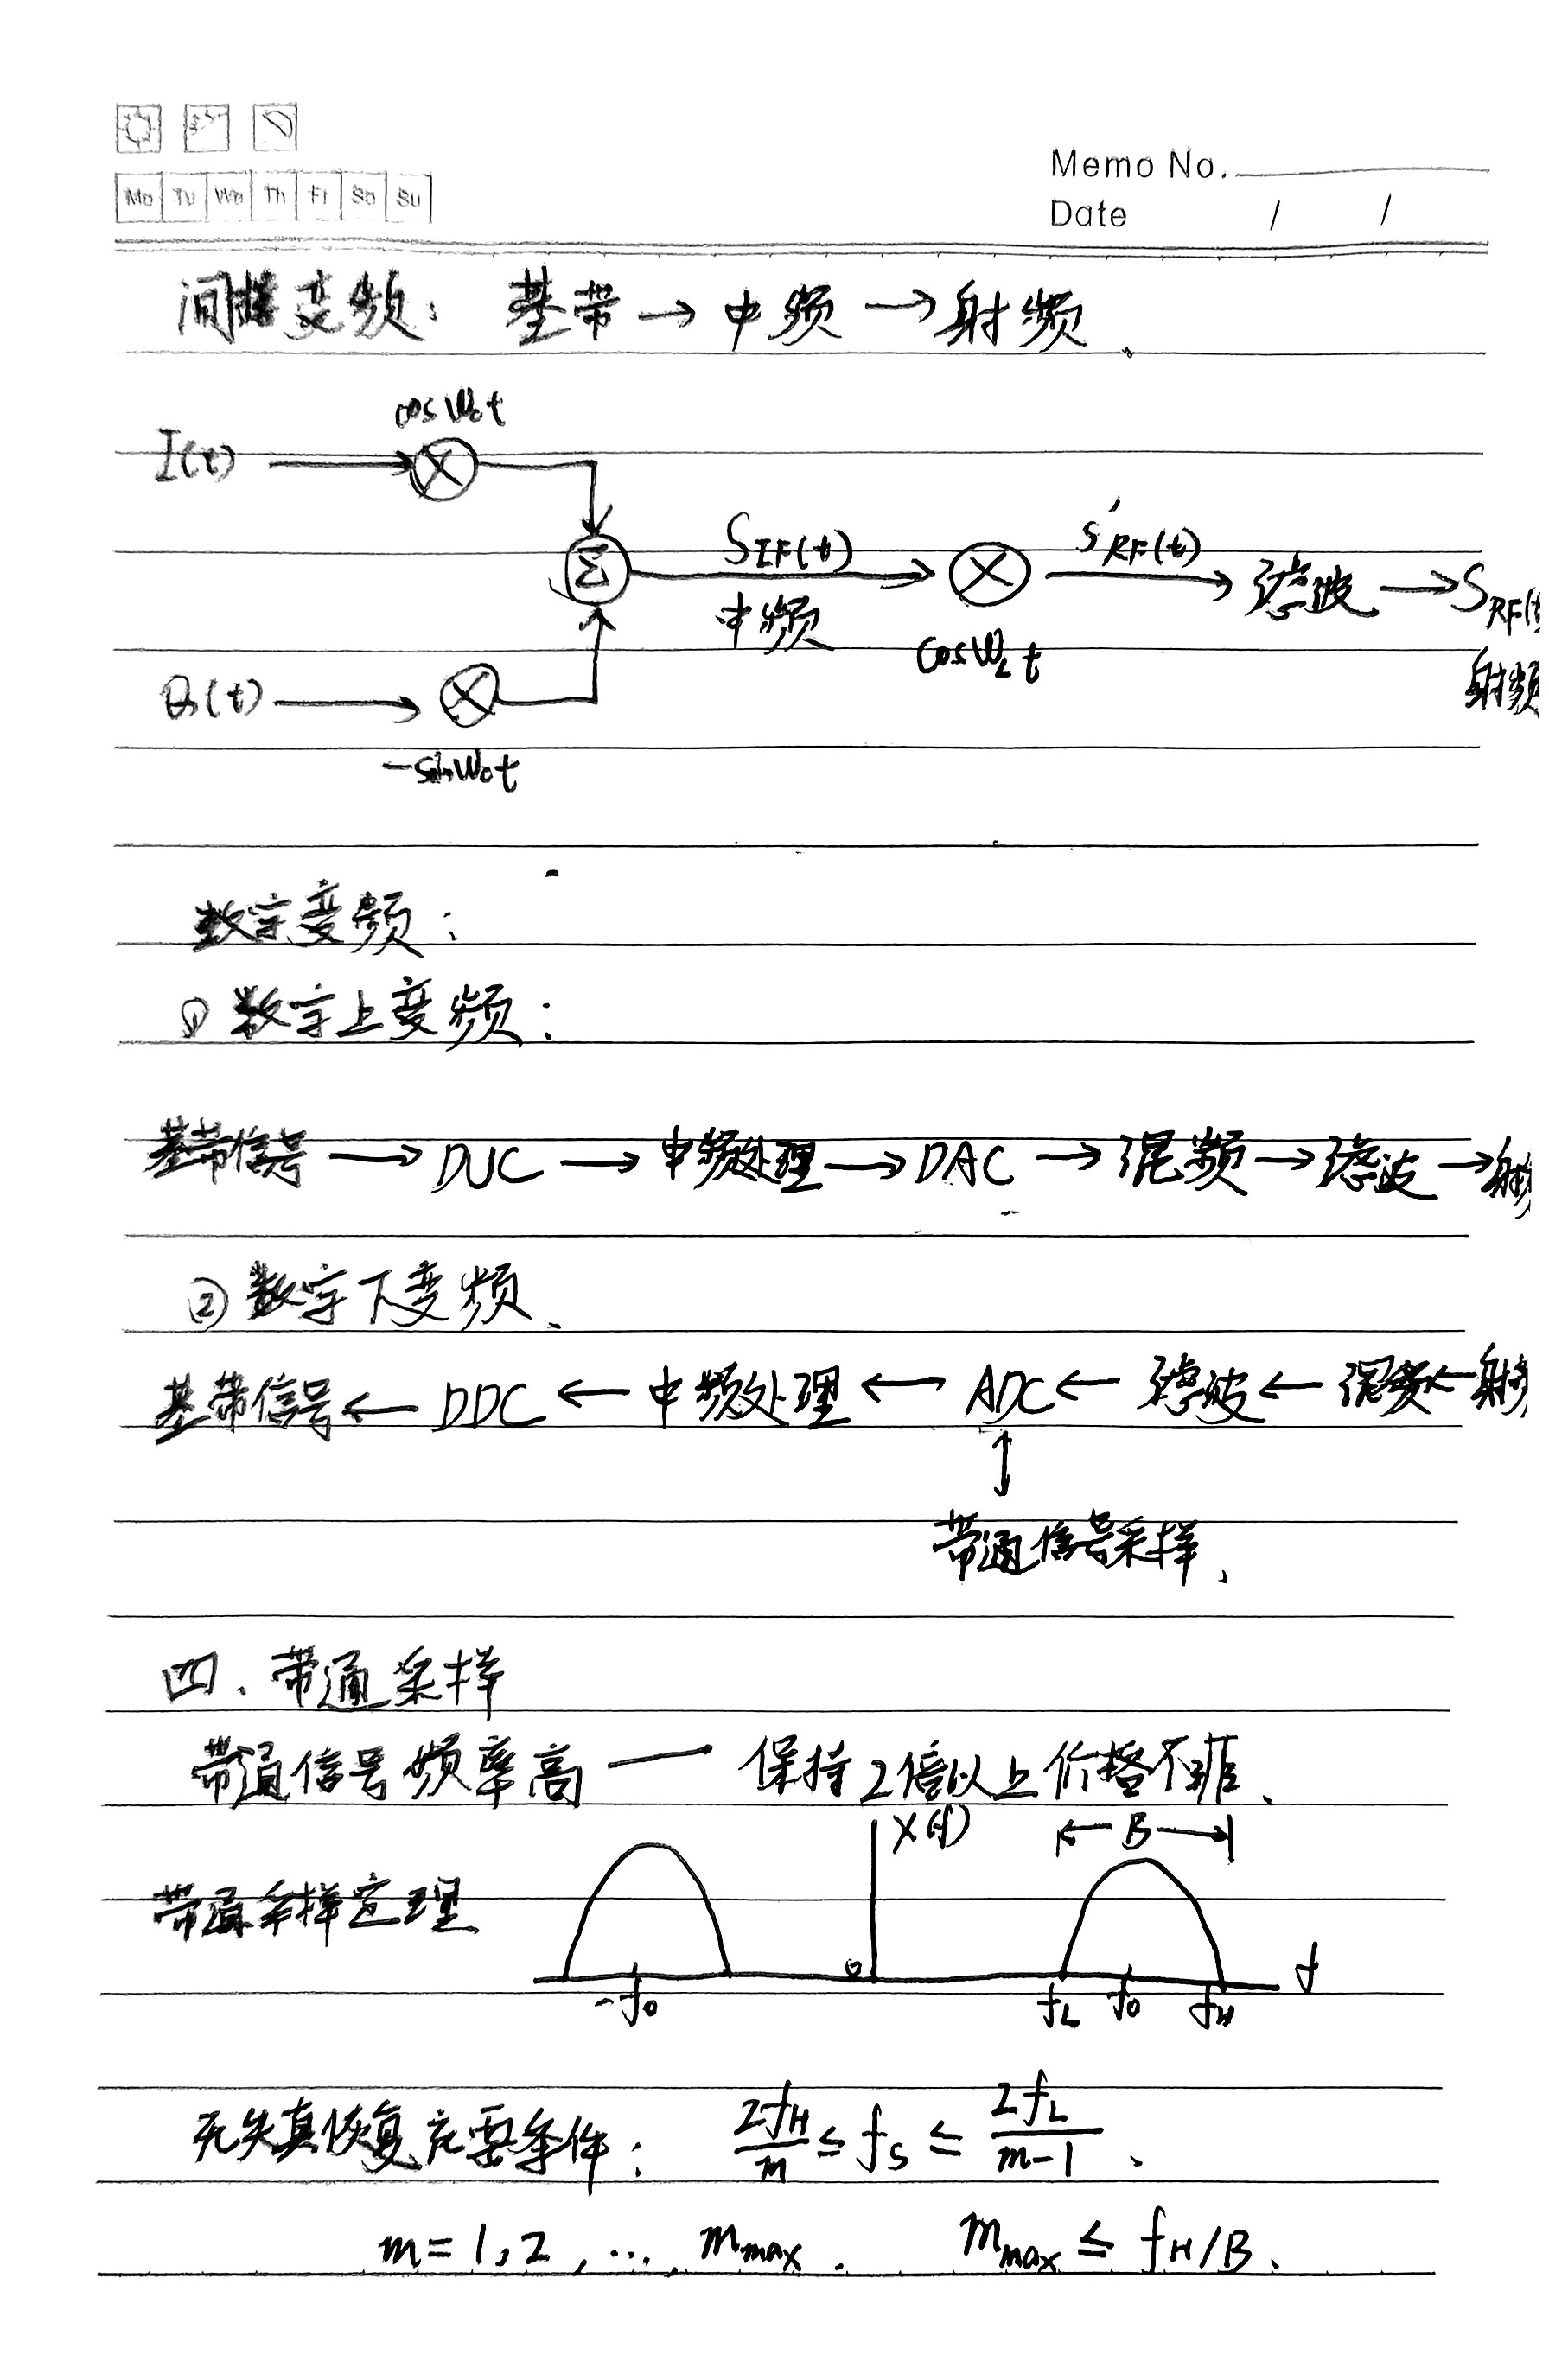 Mo Tu We Th Fr Sa Su
Memo No.
Date / /
间接变频： 基带 → 中频 → 射频.
cosω₀t
I(t)
Σ
S_IF(t)
中频
cosω_Lt
S'_RF(t)
滤波 → S_RF(t
射频
Q(t)
-sinω₀t
数字变频：
① 数字上变频：
基带信号 → DUC → 中频处理 → DAC → 混频 → 滤波 → 射
② 数字下变频.
基带信号 ← DDC ← 中频处理 ← ADC ← 滤波 ← 混频 ← 射
↑
带通信号采样.
四. 带通采样
带通信号频率高 — 保持2倍以上价格不菲.
X(f)
← B →
带通采样定理
-f₀ 0 f_L f₀ f_H f
无失真恢复充要条件： 2f_H/m ≤ f_s ≤ 2f_L/(m-1).
m = 1, 2, ..., m_max. m_max ≤ f_H/B.